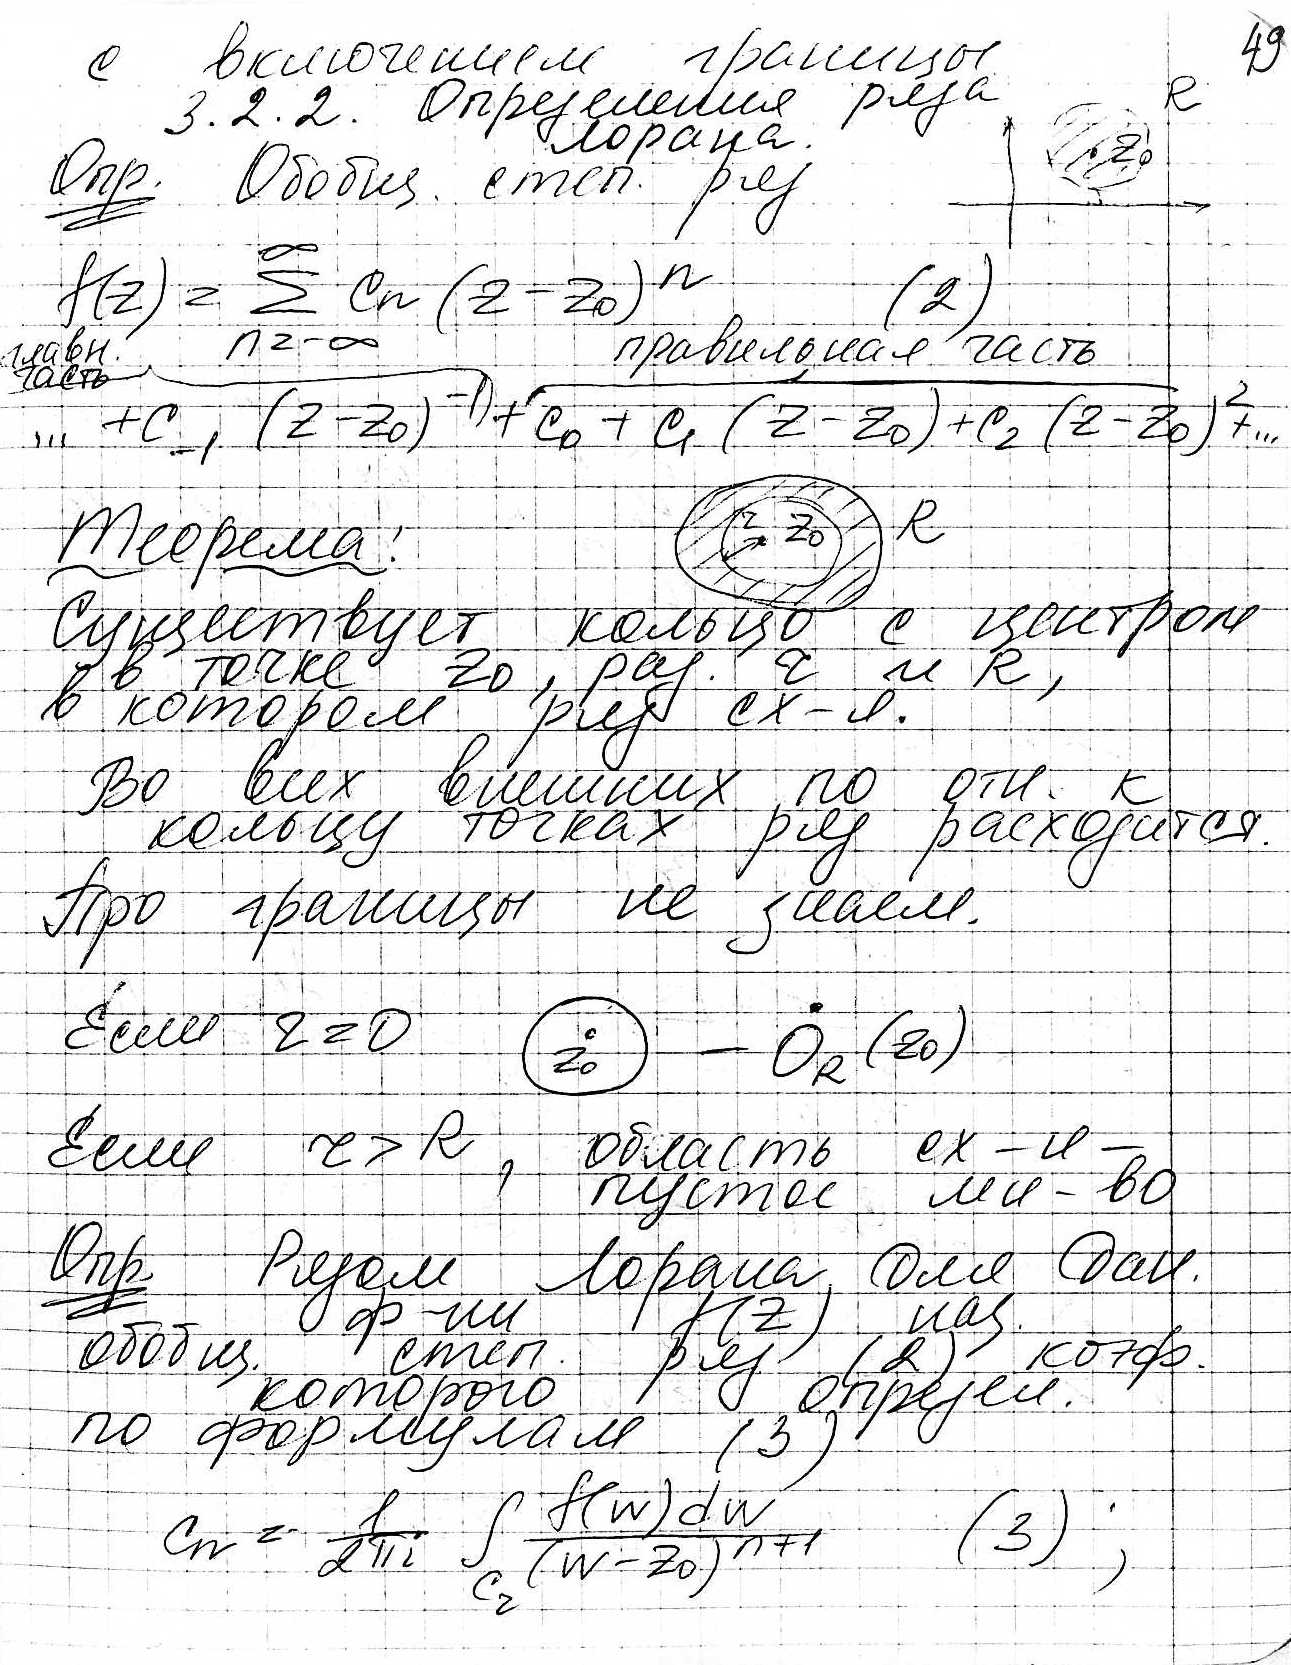 49
с включением границы
3.2.2. Определения ряда
Лорана.
R
z₀
Опр. Обобщ. степ. ряд
f(z) = ∑ cₙ (z-z₀)ⁿ (2)
∞
n=-∞
главн.
часть
правильная часть
... + c₋₁ (z-z₀)⁻¹ + c₀ + c₁ (z-z₀) + c₂ (z-z₀)² + ...
Теорема:
r z₀ R
Существует кольцо с центром
в точке z₀, рад. r и R,
в котором ряд сх-я.
Во всех внешних по отн. к
кольцу точках ряд расходится.
Про границы не знаем.
Если r=0 z₀ – Ȯ_R (z₀)
Если r>R, область сх-и –
пустое мн-во
Опр. Рядом Лорана для дан.
ф-ии f(z) наз.
обобщ. степ. ряд (2) коэф.
которого определ.
по формулам (3)
cₙ = 1/2πi ∫_{C_r} f(w)dw/(w-z₀)ⁿ⁺¹ (3);